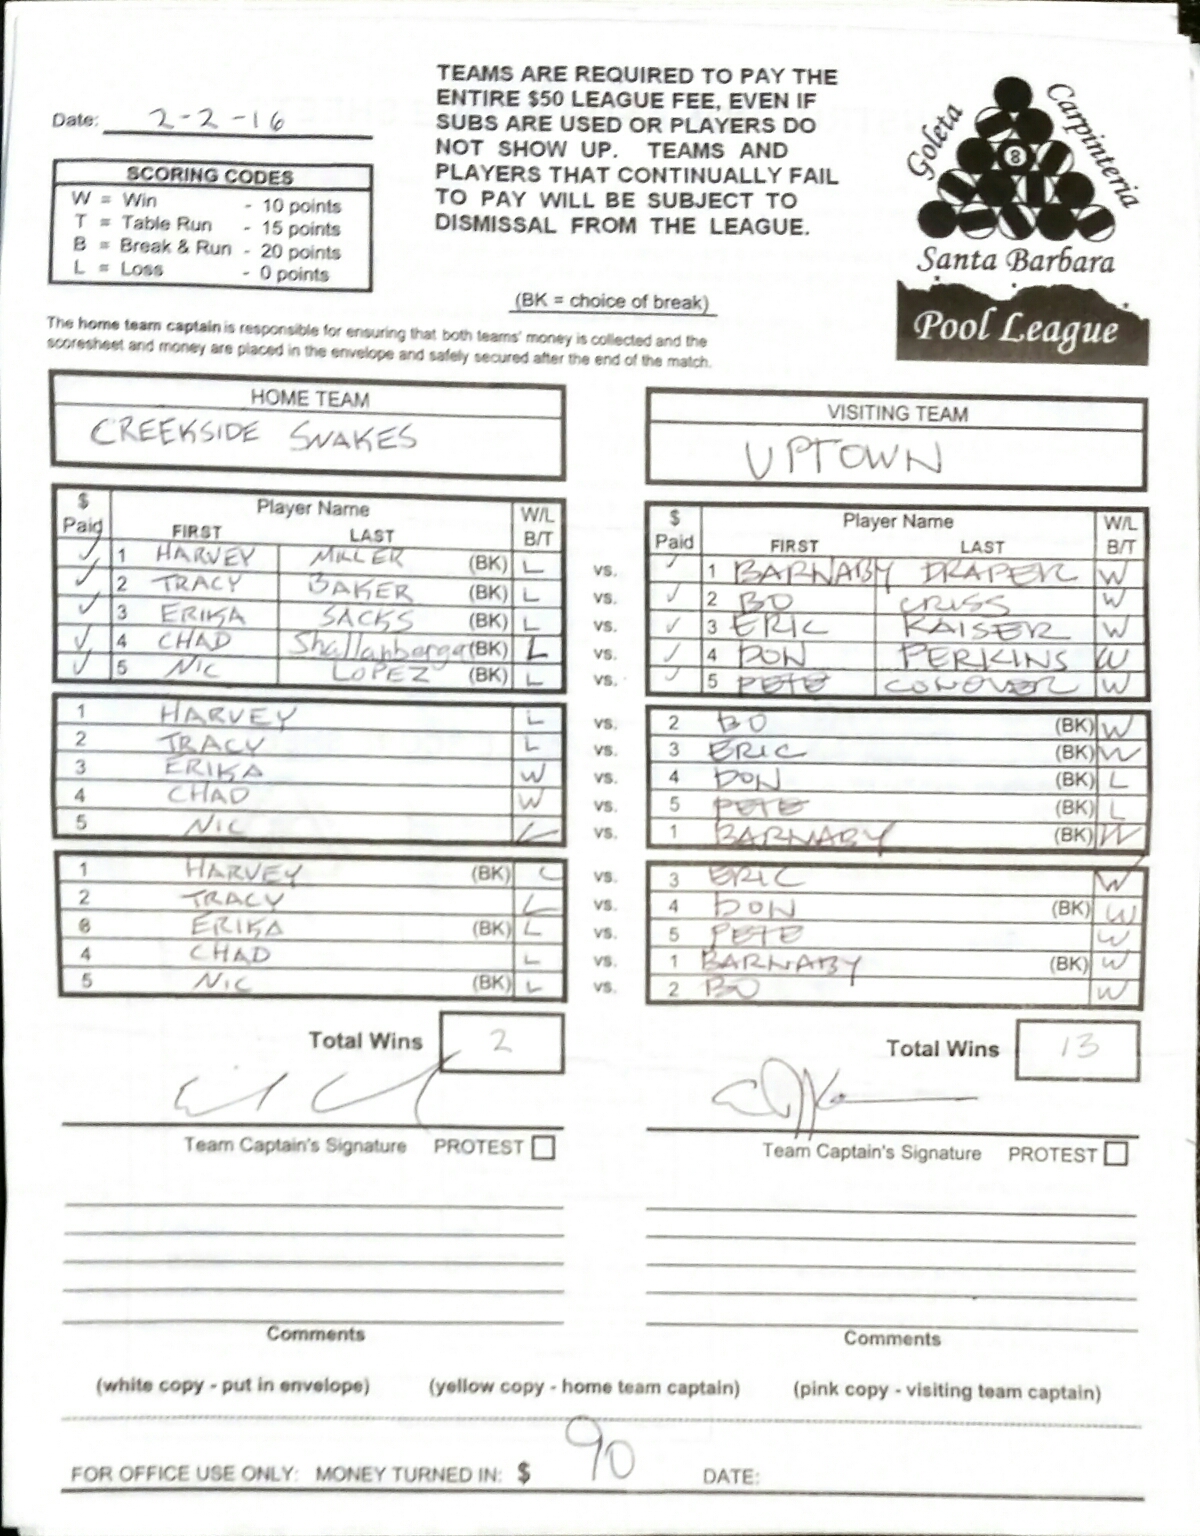 TEAMS ARE REQUIRED TO PAY THE
ENTIRE $50 LEAGUE FEE, EVEN IF
SUBS ARE USED OR PLAYERS DO
NOT SHOW UP. TEAMS AND
PLAYERS THAT CONTINUALLY FAIL
TO PAY WILL BE SUBJECT TO
DISMISSAL FROM THE LEAGUE.
Date: 2-2-16
SCORING CODES
W = Win - 10 points
T = Table Run - 15 points
B = Break & Run - 20 points
L = Loss - 0 points
Goleta
Carpinteria
8
Santa Barbara
Pool League
(BK = choice of break)
The home team captain is responsible for ensuring that both teams' money is collected and the
scoresheet and money are placed in the envelope and safely secured after the end of the match.
HOME TEAM
CREEKSIDE SNAKES
VISITING TEAM
UPTOWN
$ Paid Player Name FIRST LAST W/L B/T
$ Paid Player Name FIRST LAST W/L B/T
✓ 1 HARVEY MILLER (BK) L vs. ✓ 1 BARNABY DRAPER W
✓ 2 TRACY BAKER (BK) L vs. ✓ 2 BO CRISS W
✓ 3 ERIKA SACKS (BK) L vs. ✓ 3 ERIC KAISER W
✓ 4 CHAD Shallanberga (BK) L vs. ✓ 4 DON PERKINS W
✓ 5 NIC LOPEZ (BK) L vs. ✓ 5 PETE CONOVER W
1 HARVEY L vs. 2 BO (BK) W
2 TRACY L vs. 3 ERIC (BK) W
3 ERIKA W vs. 4 DON (BK) L
4 CHAD W vs. 5 PETE (BK) L
5 NIC L vs. 1 BARNABY (BK) W
1 HARVEY (BK) L vs. 3 ERIC W
2 TRACY L vs. 4 DON (BK) W
3 ERIKA (BK) L vs. 5 PETE W
4 CHAD L vs. 1 BARNABY (BK) W
5 NIC (BK) L vs. 2 BO W
Total Wins 2
Total Wins 13
Team Captain's Signature PROTEST
Team Captain's Signature PROTEST
Comments
Comments
(white copy - put in envelope) (yellow copy - home team captain) (pink copy - visiting team captain)
FOR OFFICE USE ONLY: MONEY TURNED IN: $ 90 DATE: